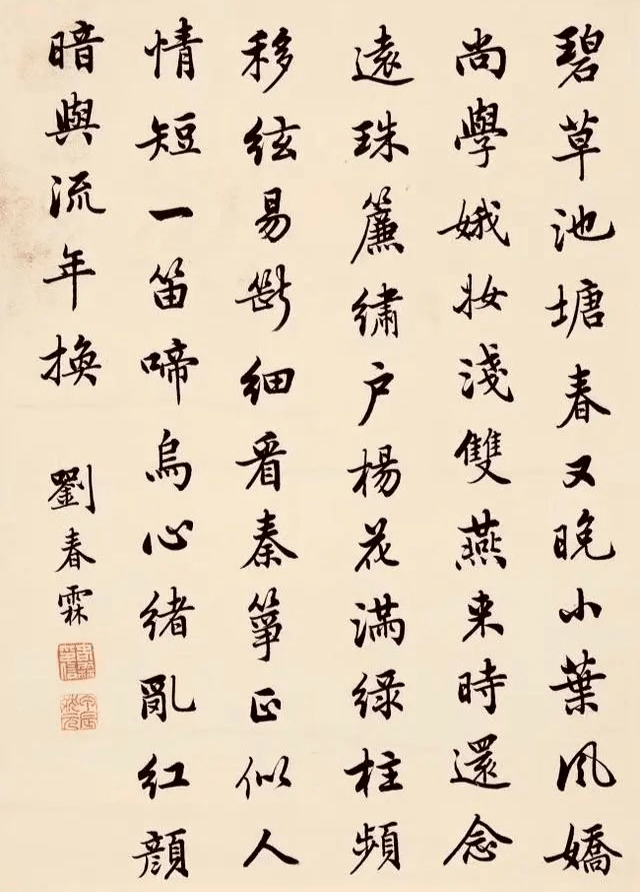 碧草池塘春又晚小葉風嬌
尚學娥妝淺雙燕来時還念
遠珠簾繡戶楊花滿綠柱頻
移絃易斷細看秦箏正似人
情短一笛啼烏心緒亂紅顔
暗與流年換
劉春霖